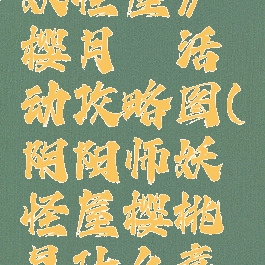 妖怪屋》
樱月 活
动攻略图(
阴阳师妖
怪屋樱桃